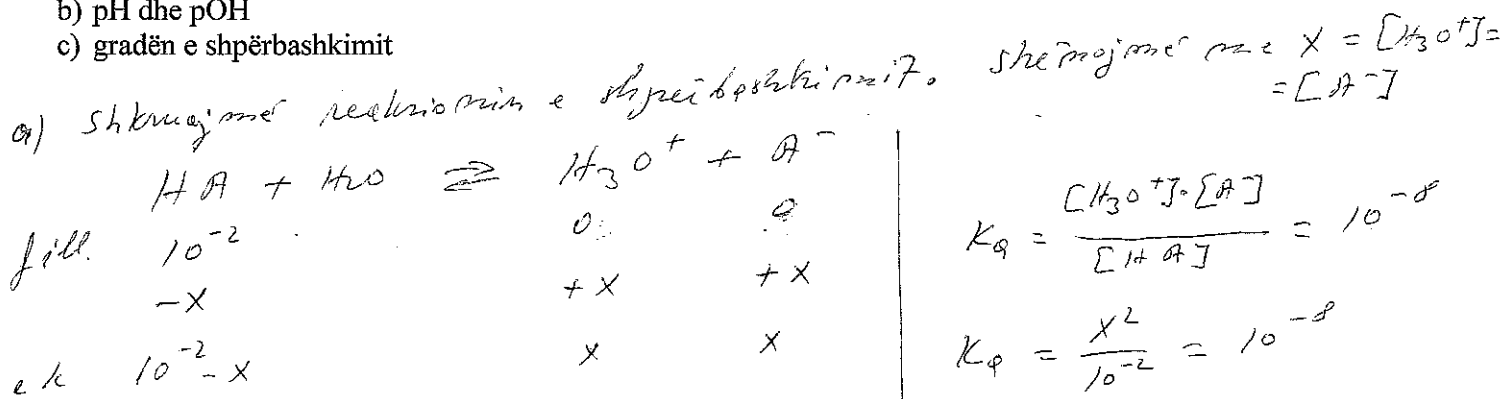 b) pH dhe pOH
c) gradën e shpërbashkimit
a) Shkruajmë reaksionin e shpërbashkimit. shënojmë me X = [H₃O⁺] =
= [A⁻]
HA + H₂O ⇌ H₃O⁺ + A⁻
fill. 10⁻² 0 0
-X +X +X
ek 10⁻² - X X X
Ka = [H₃O⁺]·[A⁻] / [HA] = 10⁻⁸
Ka = X² / 10⁻² = 10⁻⁸